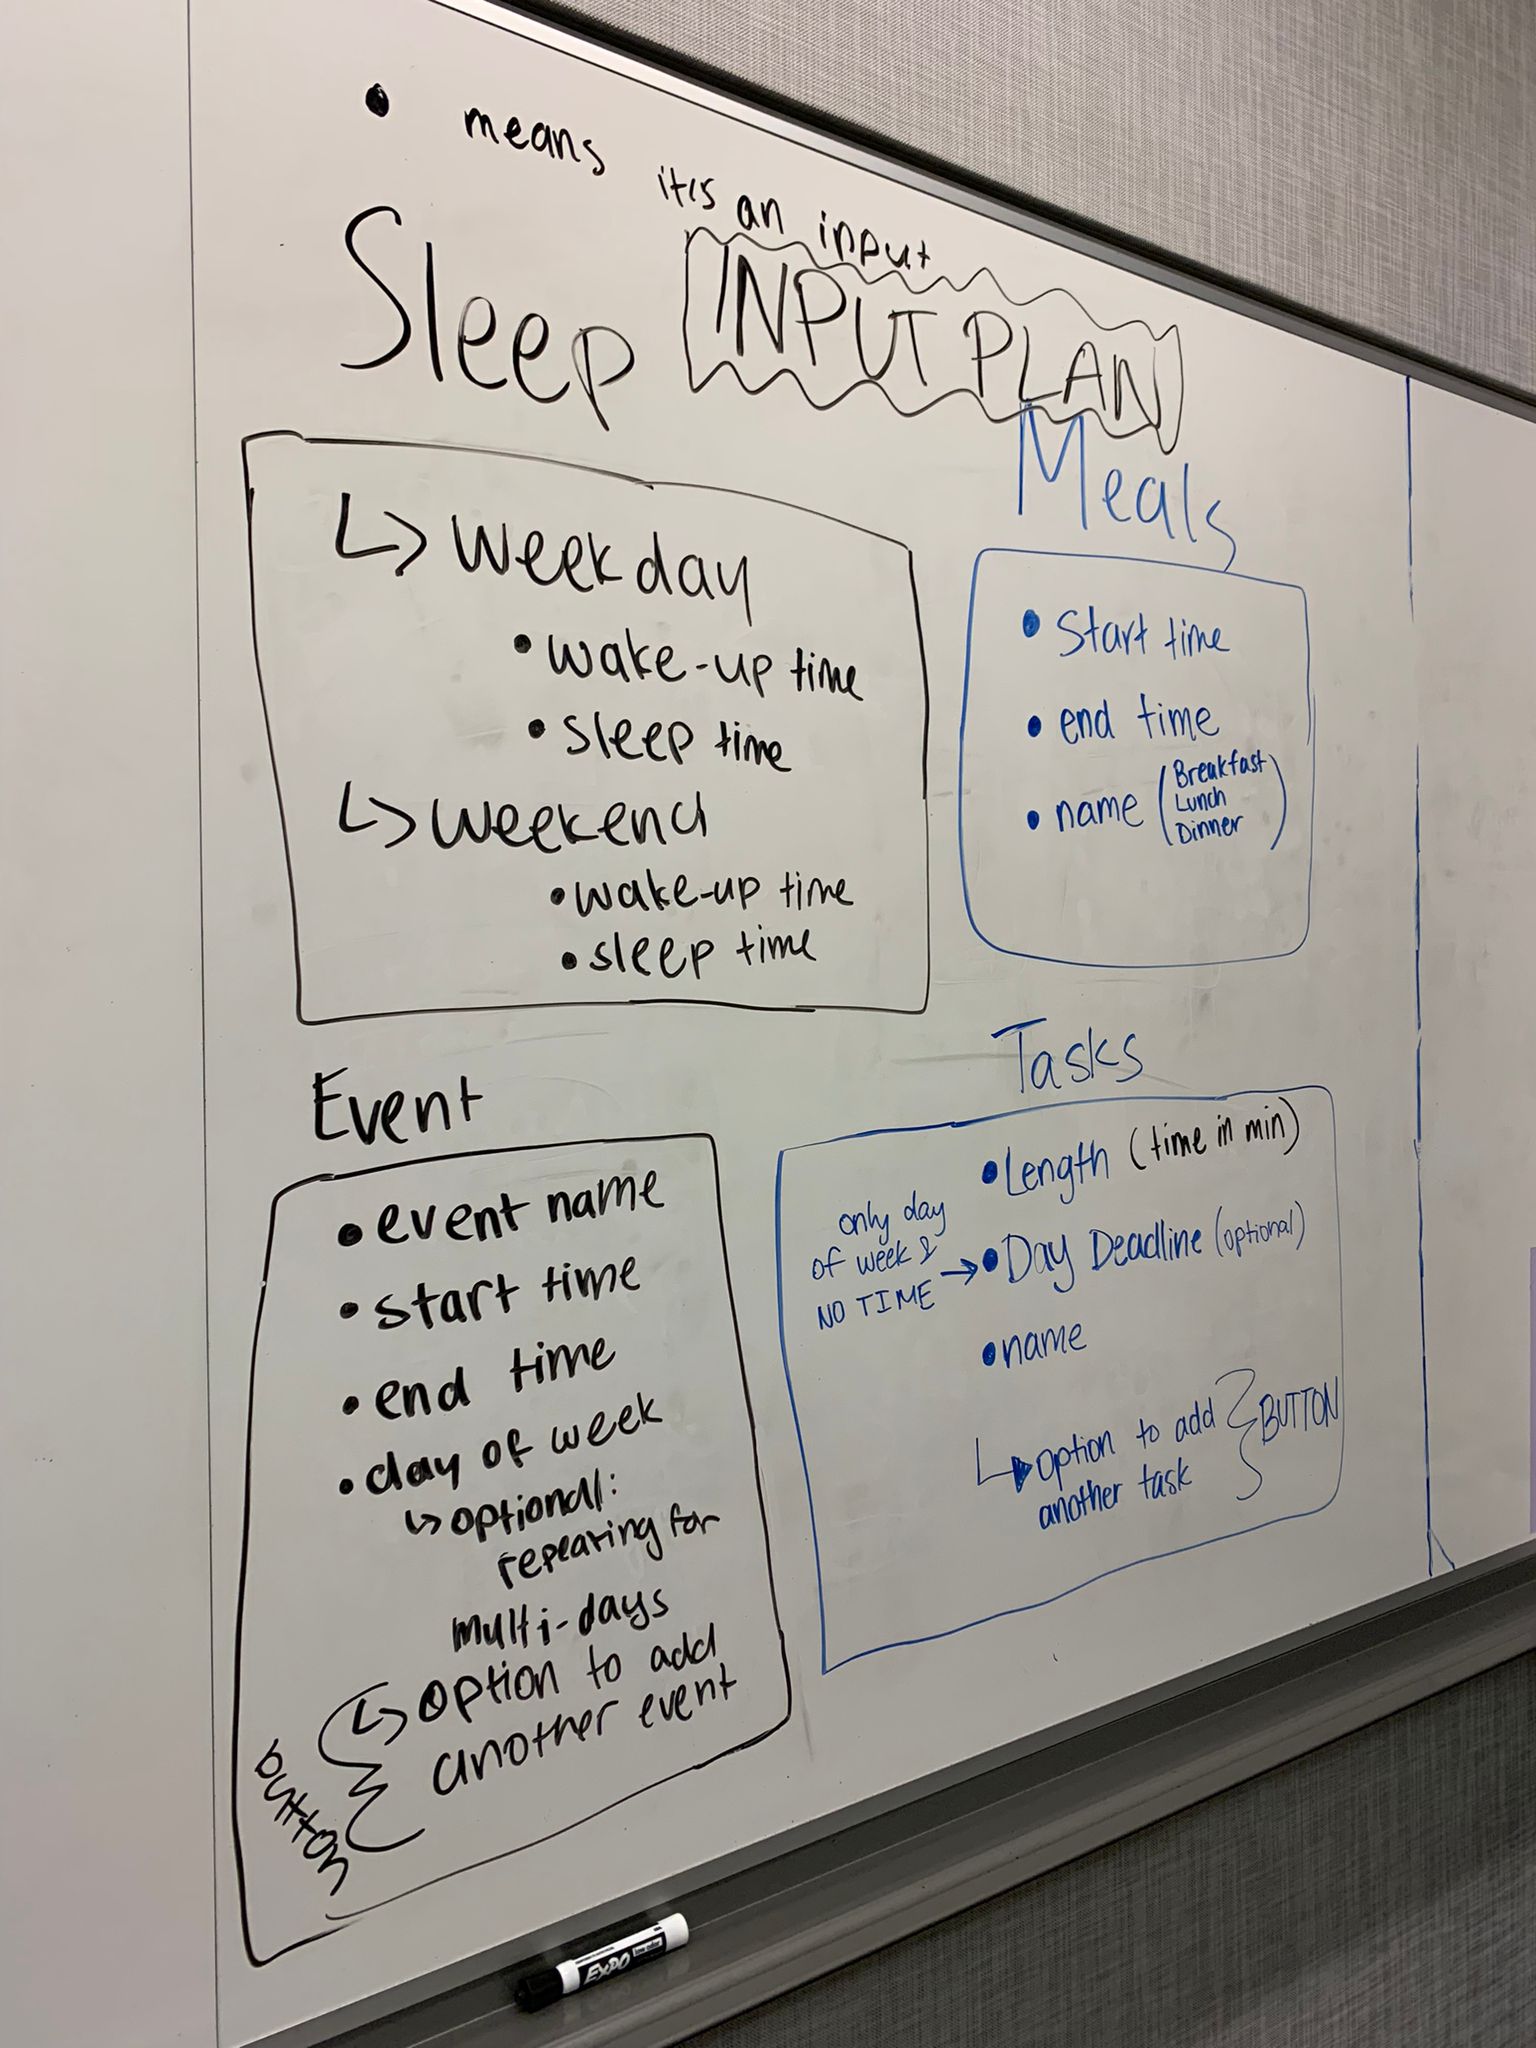 • means it's an input
INPUT PLAN
Sleep
↳ weekday
• wake-up time
• sleep time
↳ weekend
• wake-up time
• sleep time
Meals
• Start time
• end time
• name (Breakfast
Lunch
Dinner)
Event
• event name
• start time
• end time
• day of week
↳ optional:
repeating for
multi-days
↳ option to add
another event
button
Tasks
• Length (time in min)
• Day Deadline (optional)
only day
of week &
NO TIME →
• name
↳ option to add
another task
BUTTON
EXPO